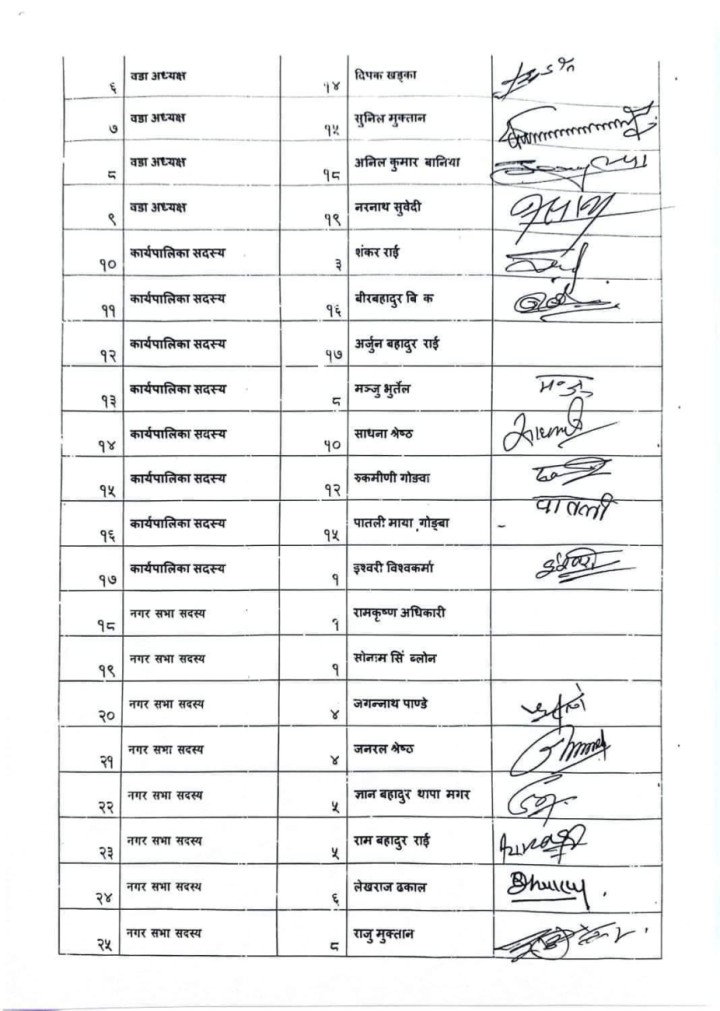 ६ वडा अध्यक्ष १४ दिपक खड्का
७ वडा अध्यक्ष १५ सुनिल मुक्तान
८ वडा अध्यक्ष १८ अनिल कुमार बानिया
९ वडा अध्यक्ष १९ नरनाथ सुवेदी
१० कार्यपालिका सदस्य ३ शंकर राई
११ कार्यपालिका सदस्य १६ बीरबहादुर बि क
१२ कार्यपालिका सदस्य १७ अर्जुन बहादुर राई
१३ कार्यपालिका सदस्य ८ मञ्जु भुर्तेल मञ्जु
१४ कार्यपालिका सदस्य १० साधना श्रेष्ठ
१५ कार्यपालिका सदस्य १२ रुकमीणी गोङवा
१६ कार्यपालिका सदस्य १५ पातली माया गोङ्बा पातली
१७ कार्यपालिका सदस्य १ इश्वरी विश्वकर्मा
१८ नगर सभा सदस्य १ रामकृष्ण अधिकारी
१९ नगर सभा सदस्य १ सोनाम सिं ब्लोन
२० नगर सभा सदस्य ४ जगन्नाथ पाण्डे
२१ नगर सभा सदस्य ४ जनरल श्रेष्ठ
२२ नगर सभा सदस्य ५ ज्ञान बहादुर थापा मगर
२३ नगर सभा सदस्य ५ राम बहादुर राई
२४ नगर सभा सदस्य ६ लेखराज ढकाल
२५ नगर सभा सदस्य ८ राजु मुक्तान